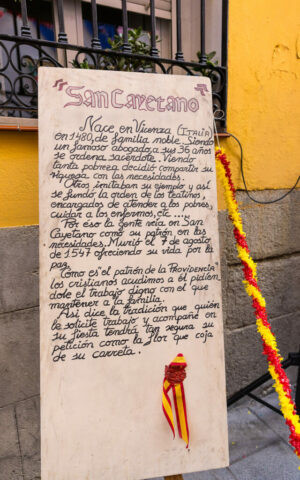 San Cayetano
Nace en Vicenza (ITALIA)
en 1480, de familia noble. Siendo
un famoso abogado, a sus 36 años
se ordena sacerdote. Viendo
tanta pobreza, decidió compartir su
riqueza con las necesidades.
Otros imitaban su ejemplo y así
se fundó la orden de los teatinos,
encargados de atender a los pobres,
cuidar a los enfermos, etc ...,
Por eso la gente vería en San
Cayetano como su patrón en las
necesidades. Murió el 7 de agosto
de 1547 ofreciendo su vida por la
paz.
Como es el patrón de la Providencia
los cristianos acudimos a él pidien
dole el trabajo digno con el que
mantener a la familia.
Asi dice la tradición que quién
le solicite trabajo y acompañe en
su fiesta tendrá tan segura su
petición como la flor que coja
de su carreta.